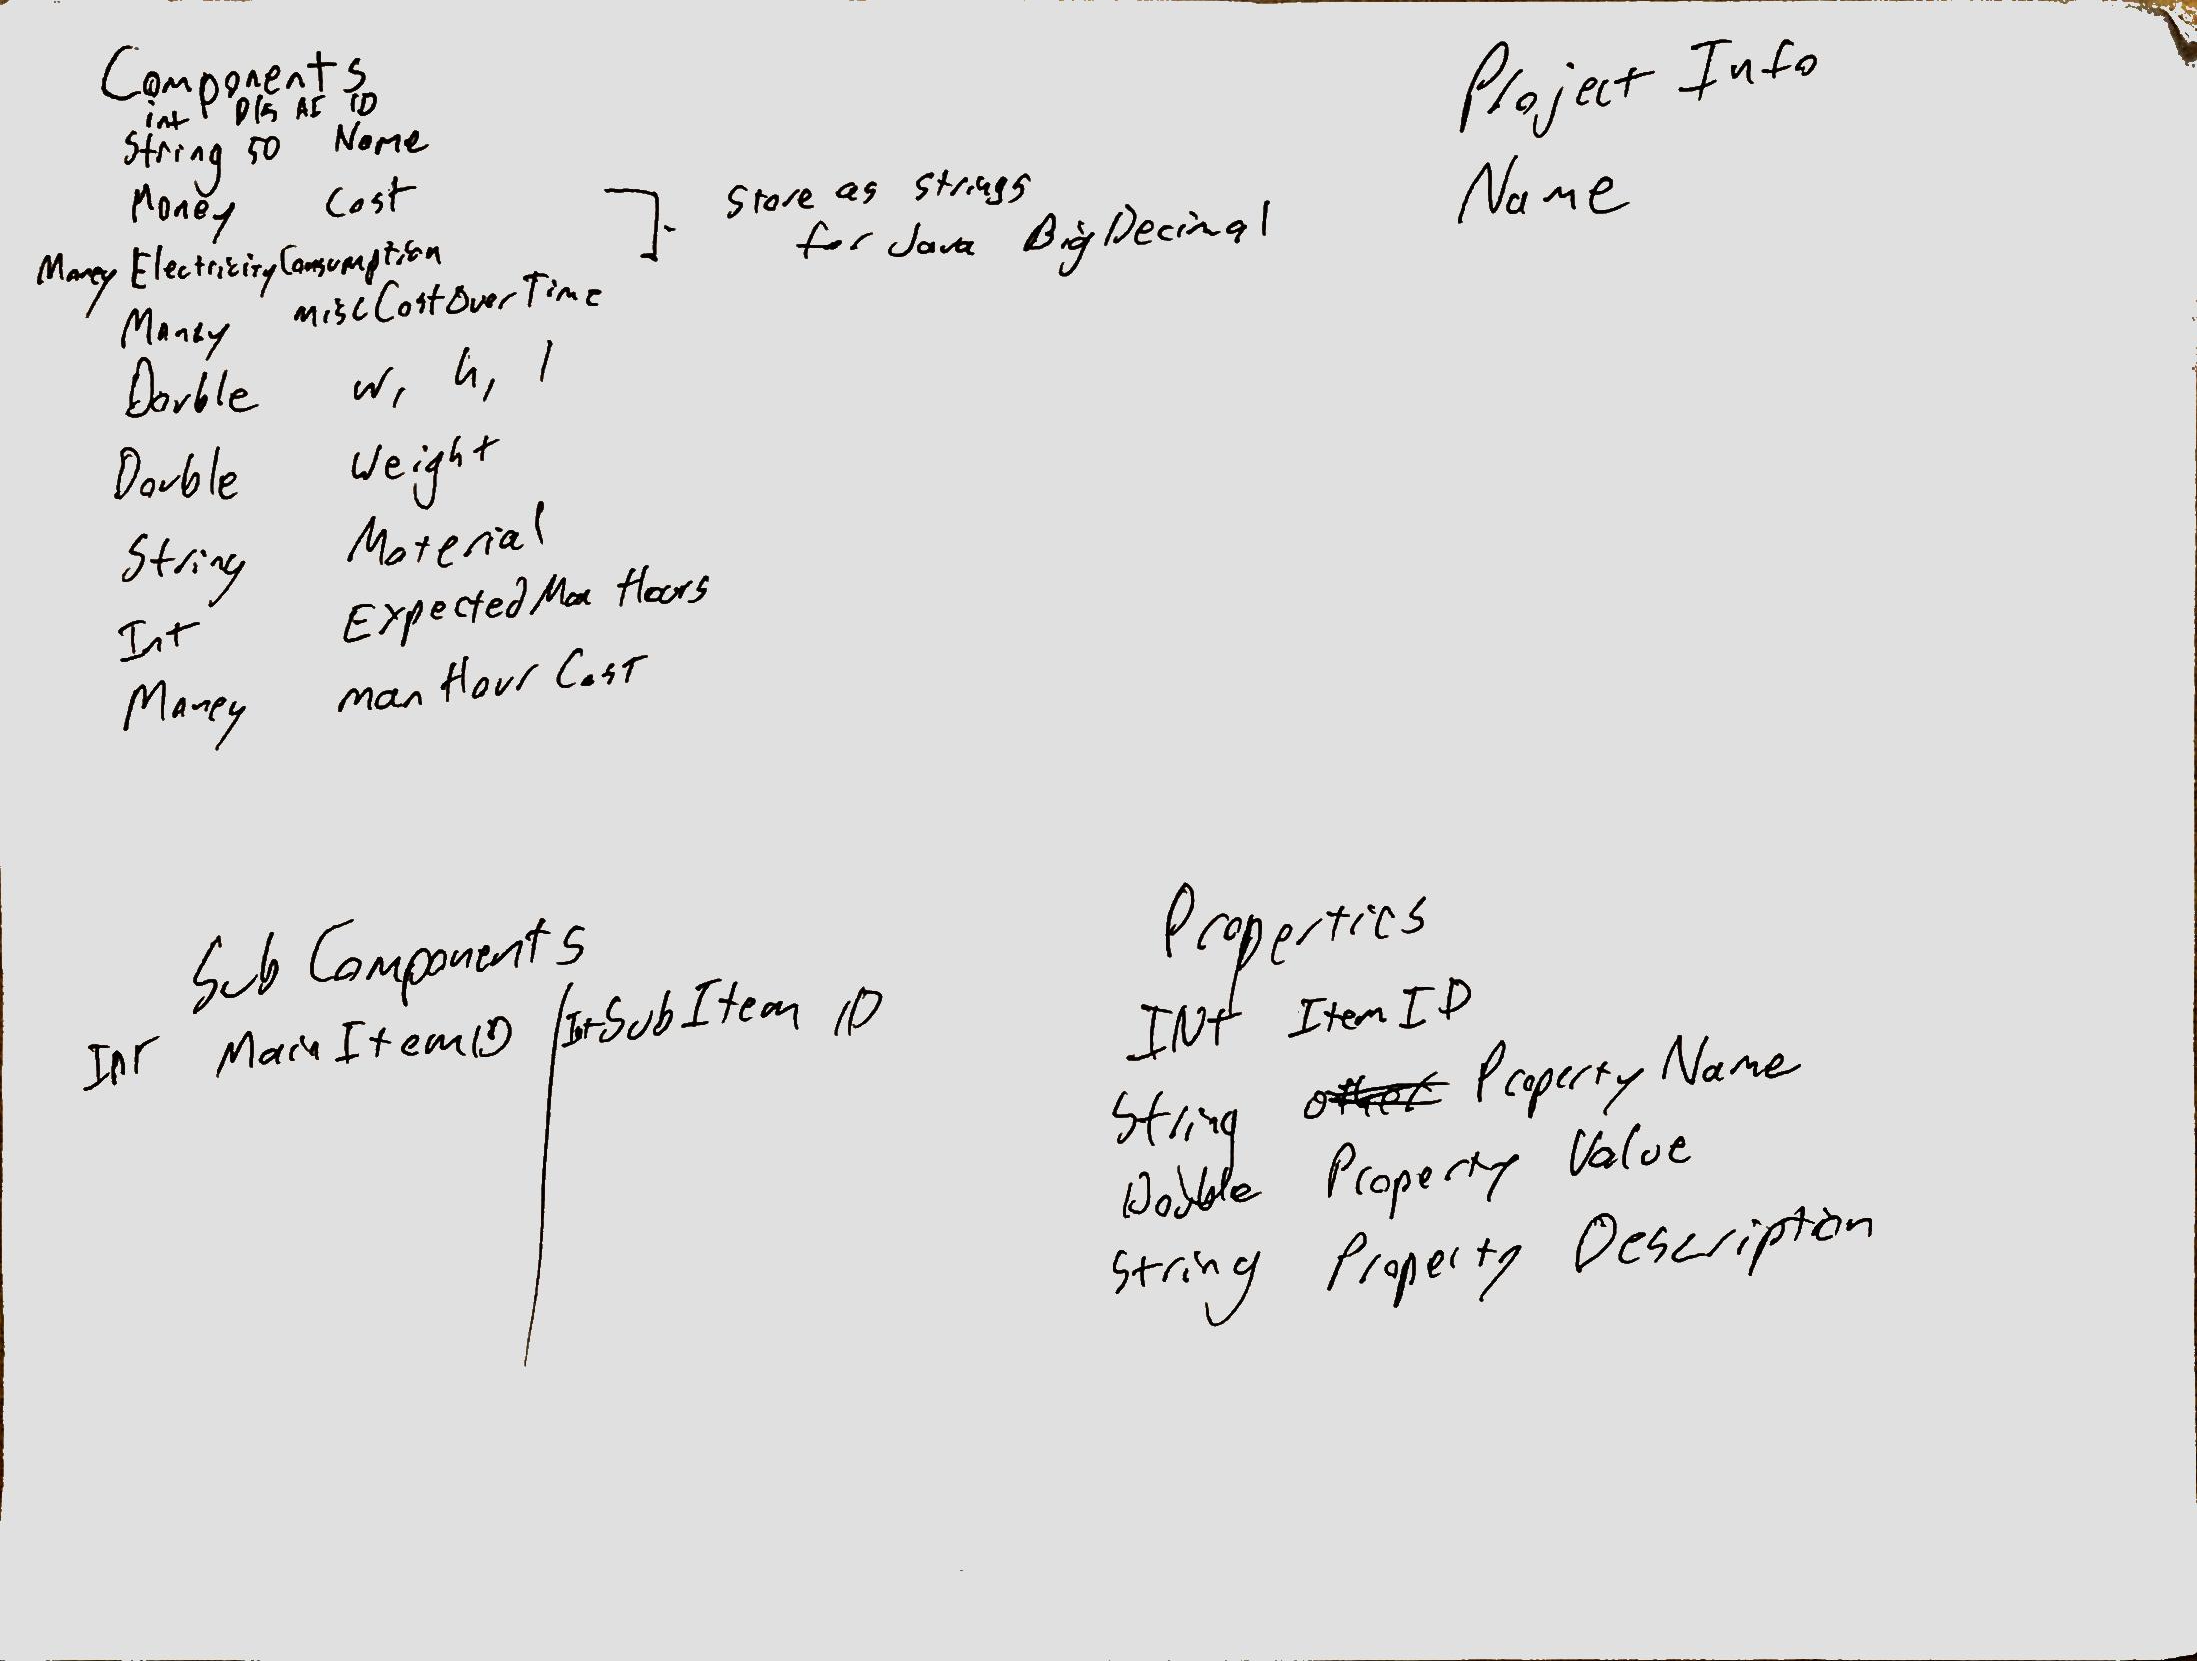 Components
int AI ID
String 50 Name
Money Cost
Money ElectricityConsumption
Money miscCostOverTime
Double w, h, l
Double Weight
String Material
Int ExpectedMan Hours
Money man Hour Cost
Store as strings
for Java BigDecimal
Project Info
Name
Sub Components
Int MainItemID Int SubItem ID
Properties
INt ItemID
String PropertyName
Double Property Value
String Property Description